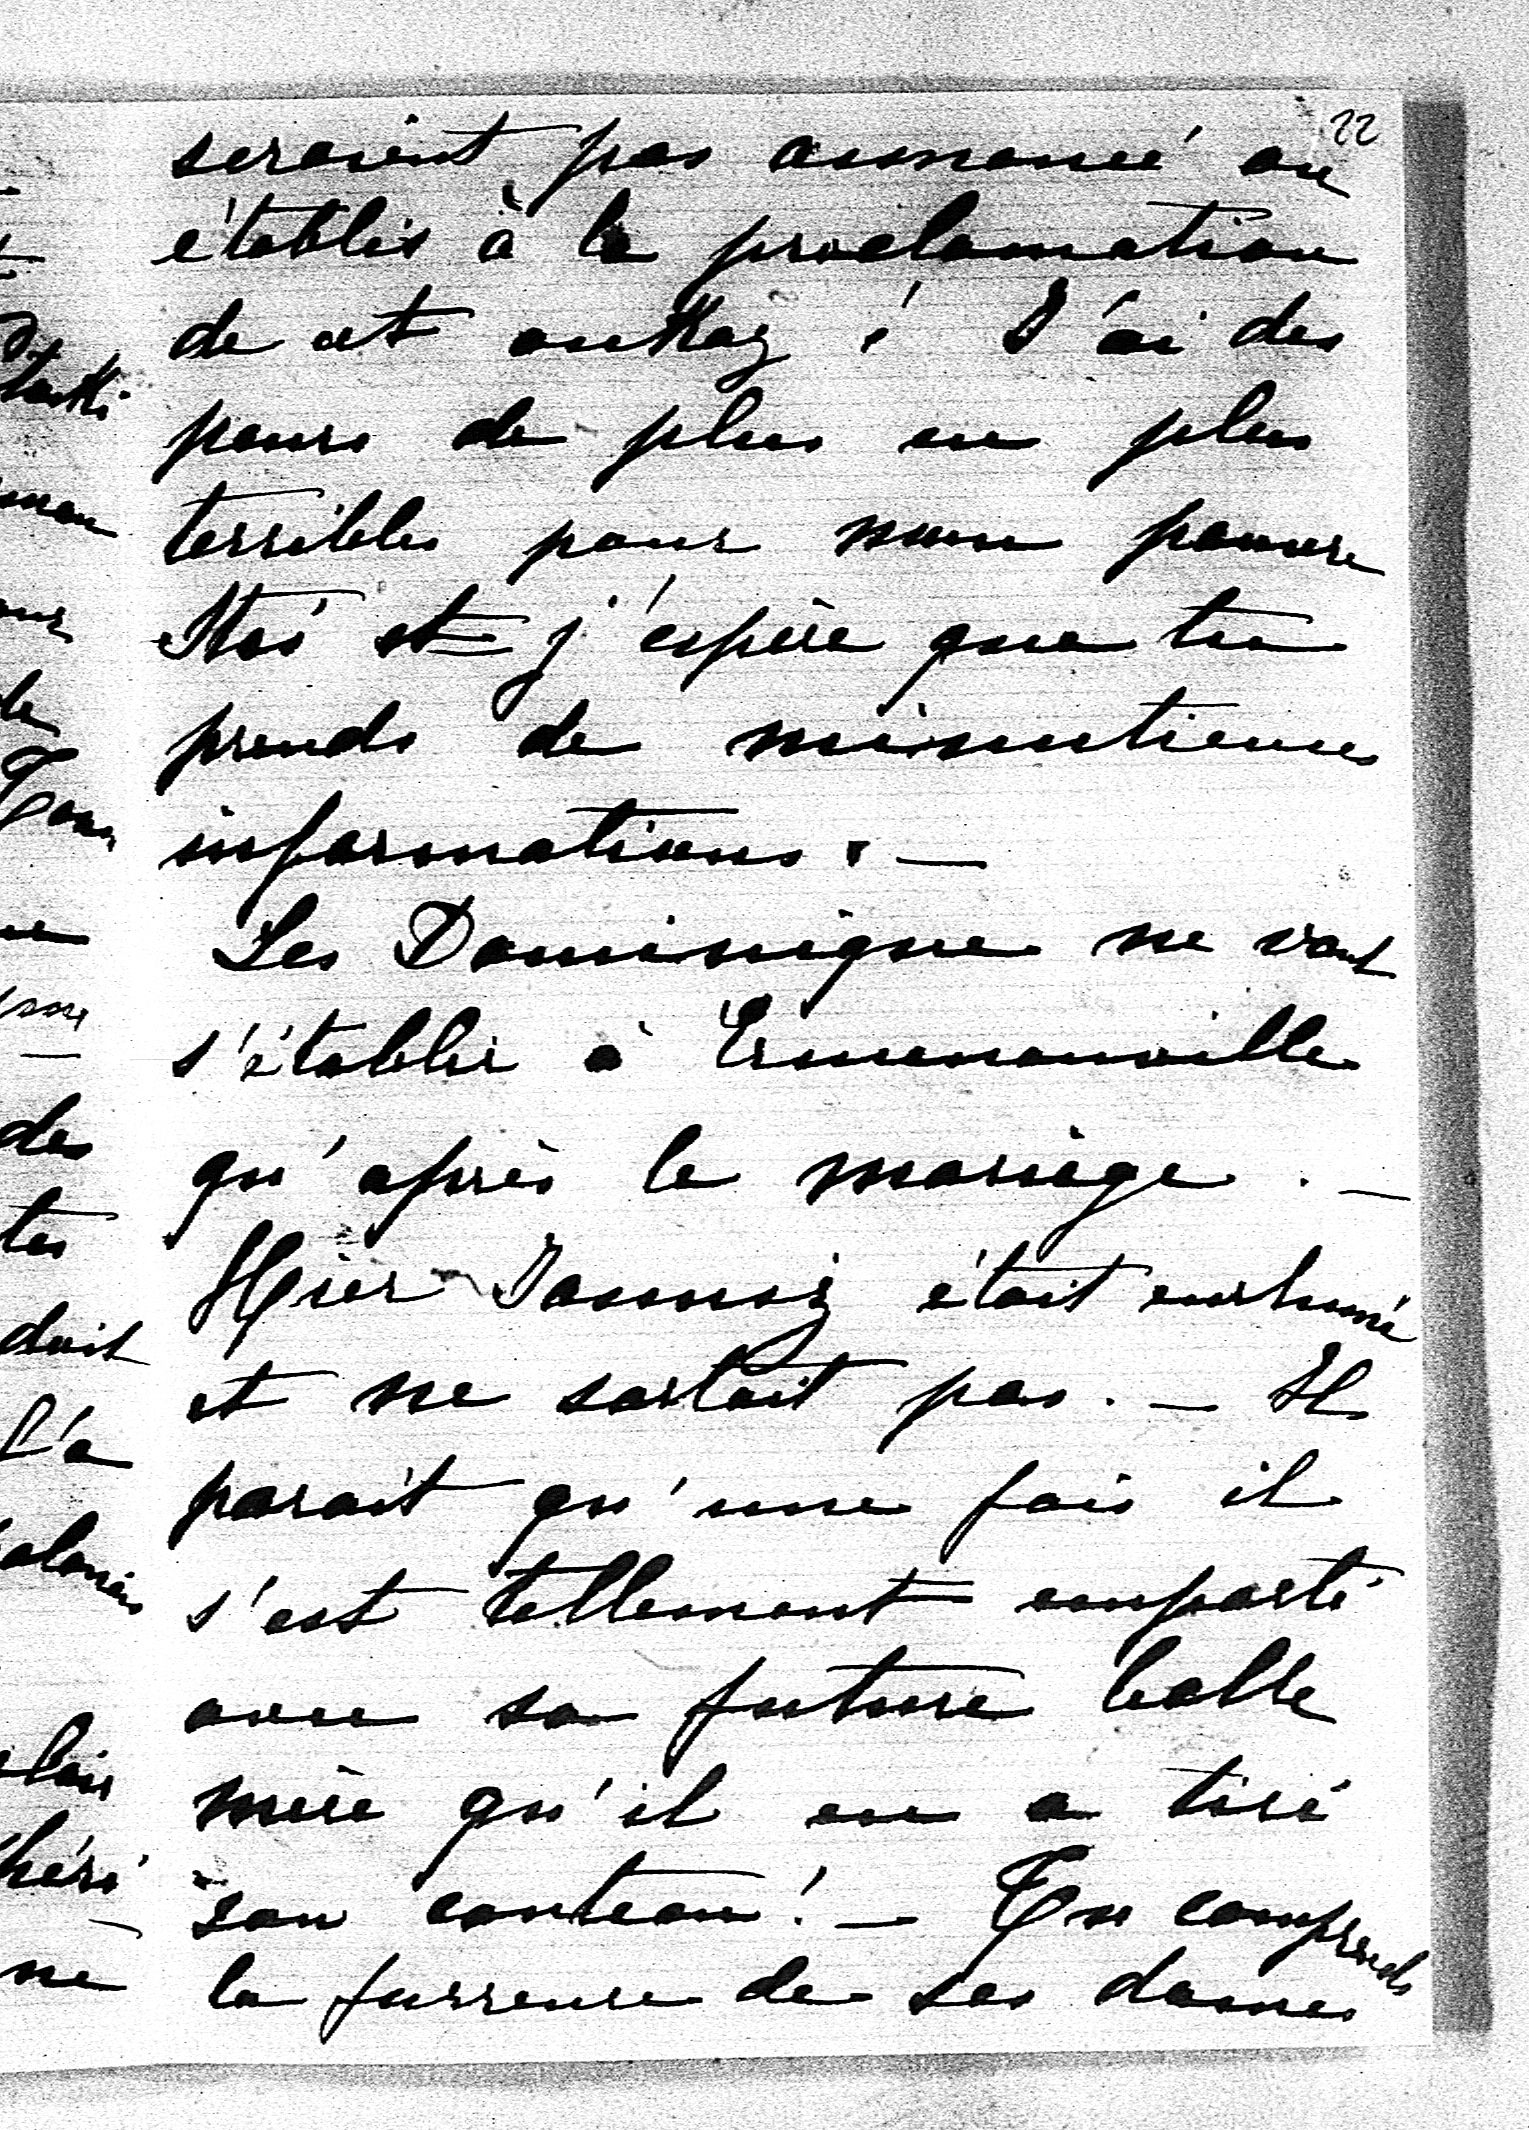 22
seraient pas annoncé ou
établis à la proclamation
de cet oukaz ! J'ai des
peurs de plus en plus
terribles pour mon pauvre
et j'espère que tu
prends de minutieuses
informations. —
Les Dominique ne vont
s'établir à Ermenonville
qu'après le mariage. —
Hier était enrhumé
et ne sortait pas. — Il
parait qu'une fois il
s'est tellement emporté
avec sa future belle
mère qu'il en a tiré
son couteau ! — Tu comprends
la furreure de ses dames